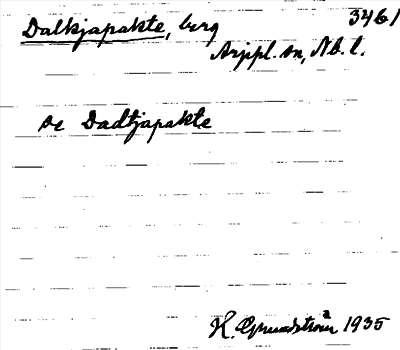 Dalkjapakte, berg 3461
Arjpl. sn, Nb. l.
se Dadtjapakte
H. Grundström 1935